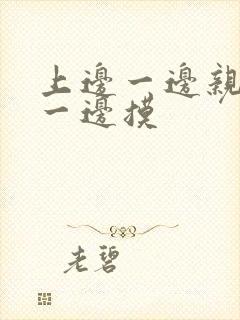 上邊一邊親
一邊摸
老碧